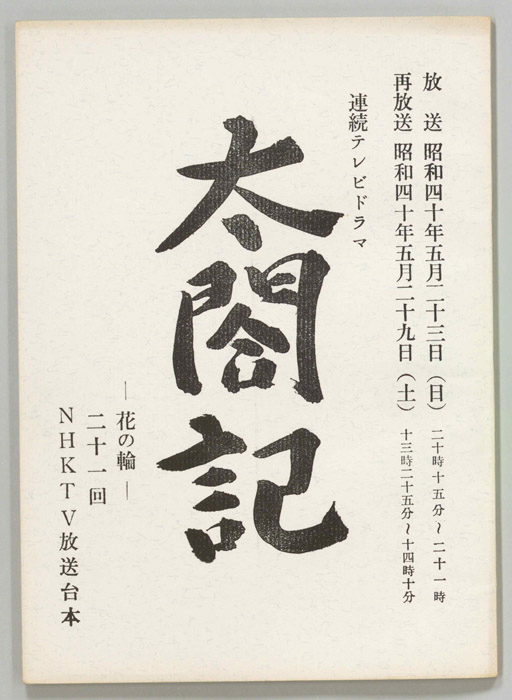 放　送　昭和四十年五月二十三日（日）二十時十五分～二十一時
再放送　昭和四十年五月二十九日（土）十三時二十五分～十四時十分
連続テレビドラマ
太閤記
―花の輪―
二十一回
NHKTV放送台本